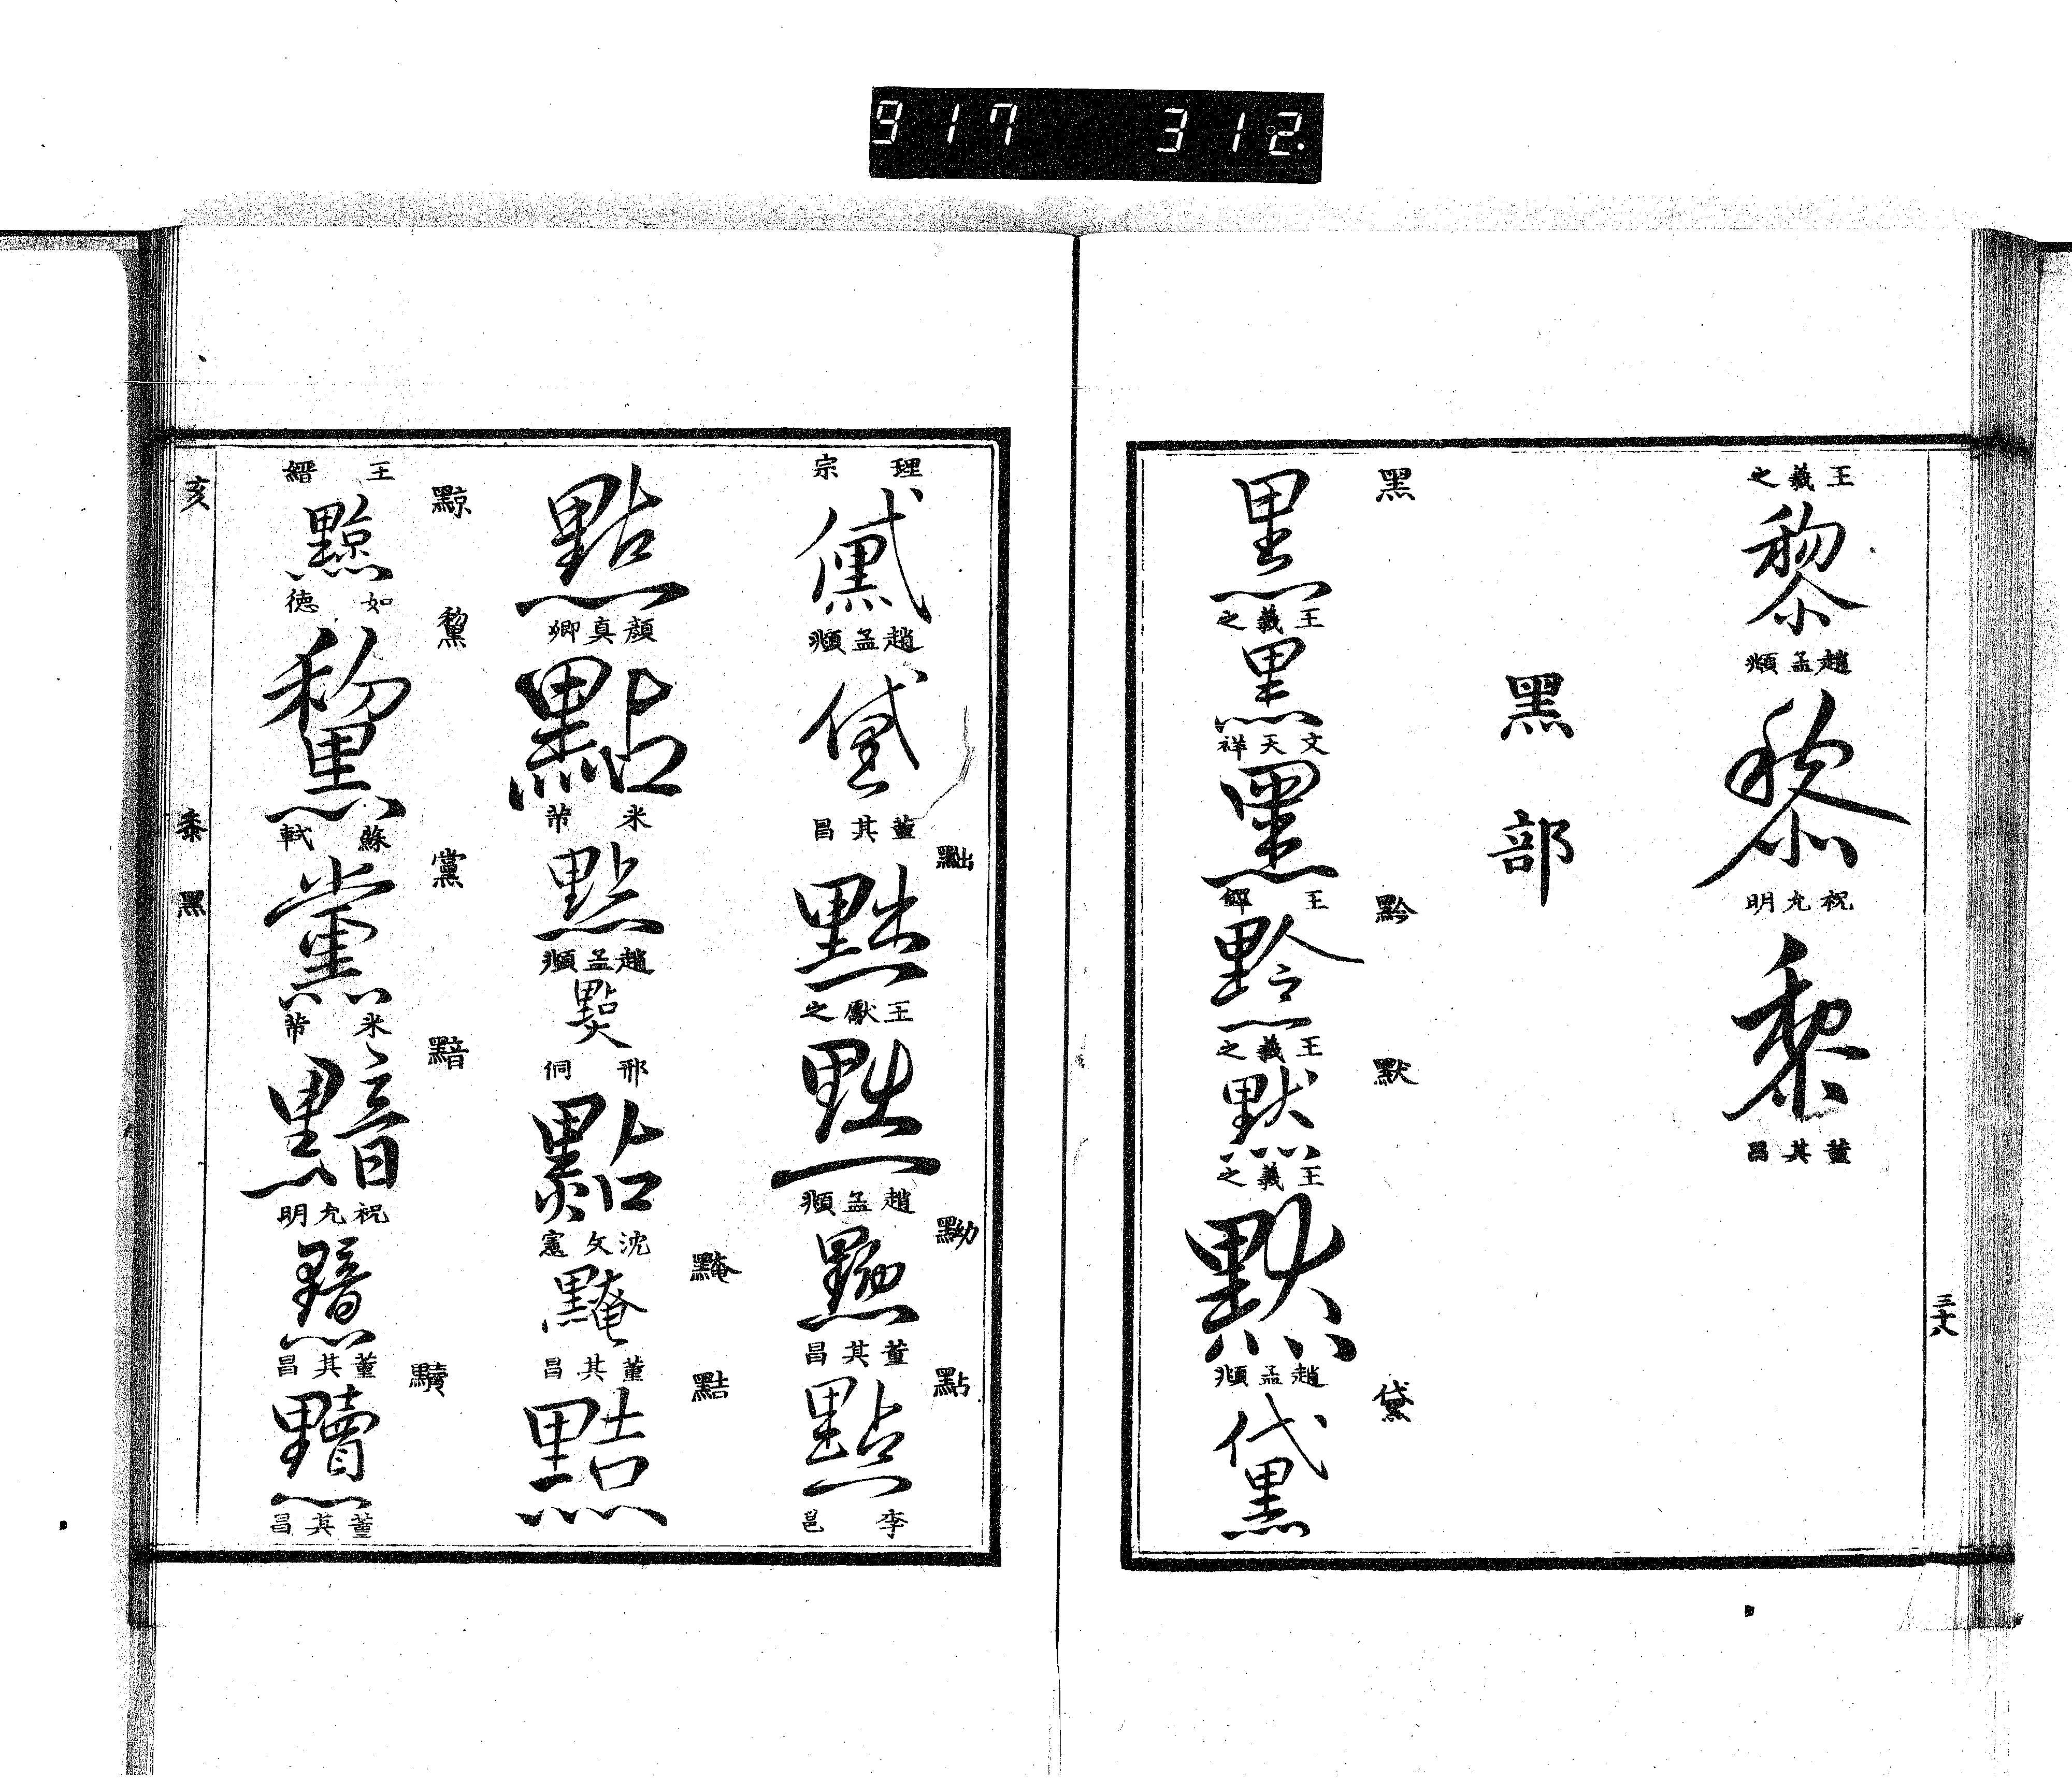 917 312
三十八
王羲之
黎
趙孟頫
黎
祝允明
黎
董其昌
黑部
黑
黑
王羲之
黑
文天祥
黑
王鐸
黔
黔
王羲之
默
默
王羲之
默
趙孟頫
黛
黛
理宗
黛
趙孟頫
黛
董其昌
黜
黜
王獻之
黜
趙孟頫
黝
黝
董其昌
點
點
李邕
點
顏真卿
點
米芾
點
趙孟頫
點
邢侗
點
沈文憲
黤
黤
董其昌
黠
黠
王縉
黥
黥
如德
黧
黧
蘇軾
黨
黨
米芾
黯
黯
祝允明
黯
董其昌
黷
黷
董其昌
亥
黍
黑